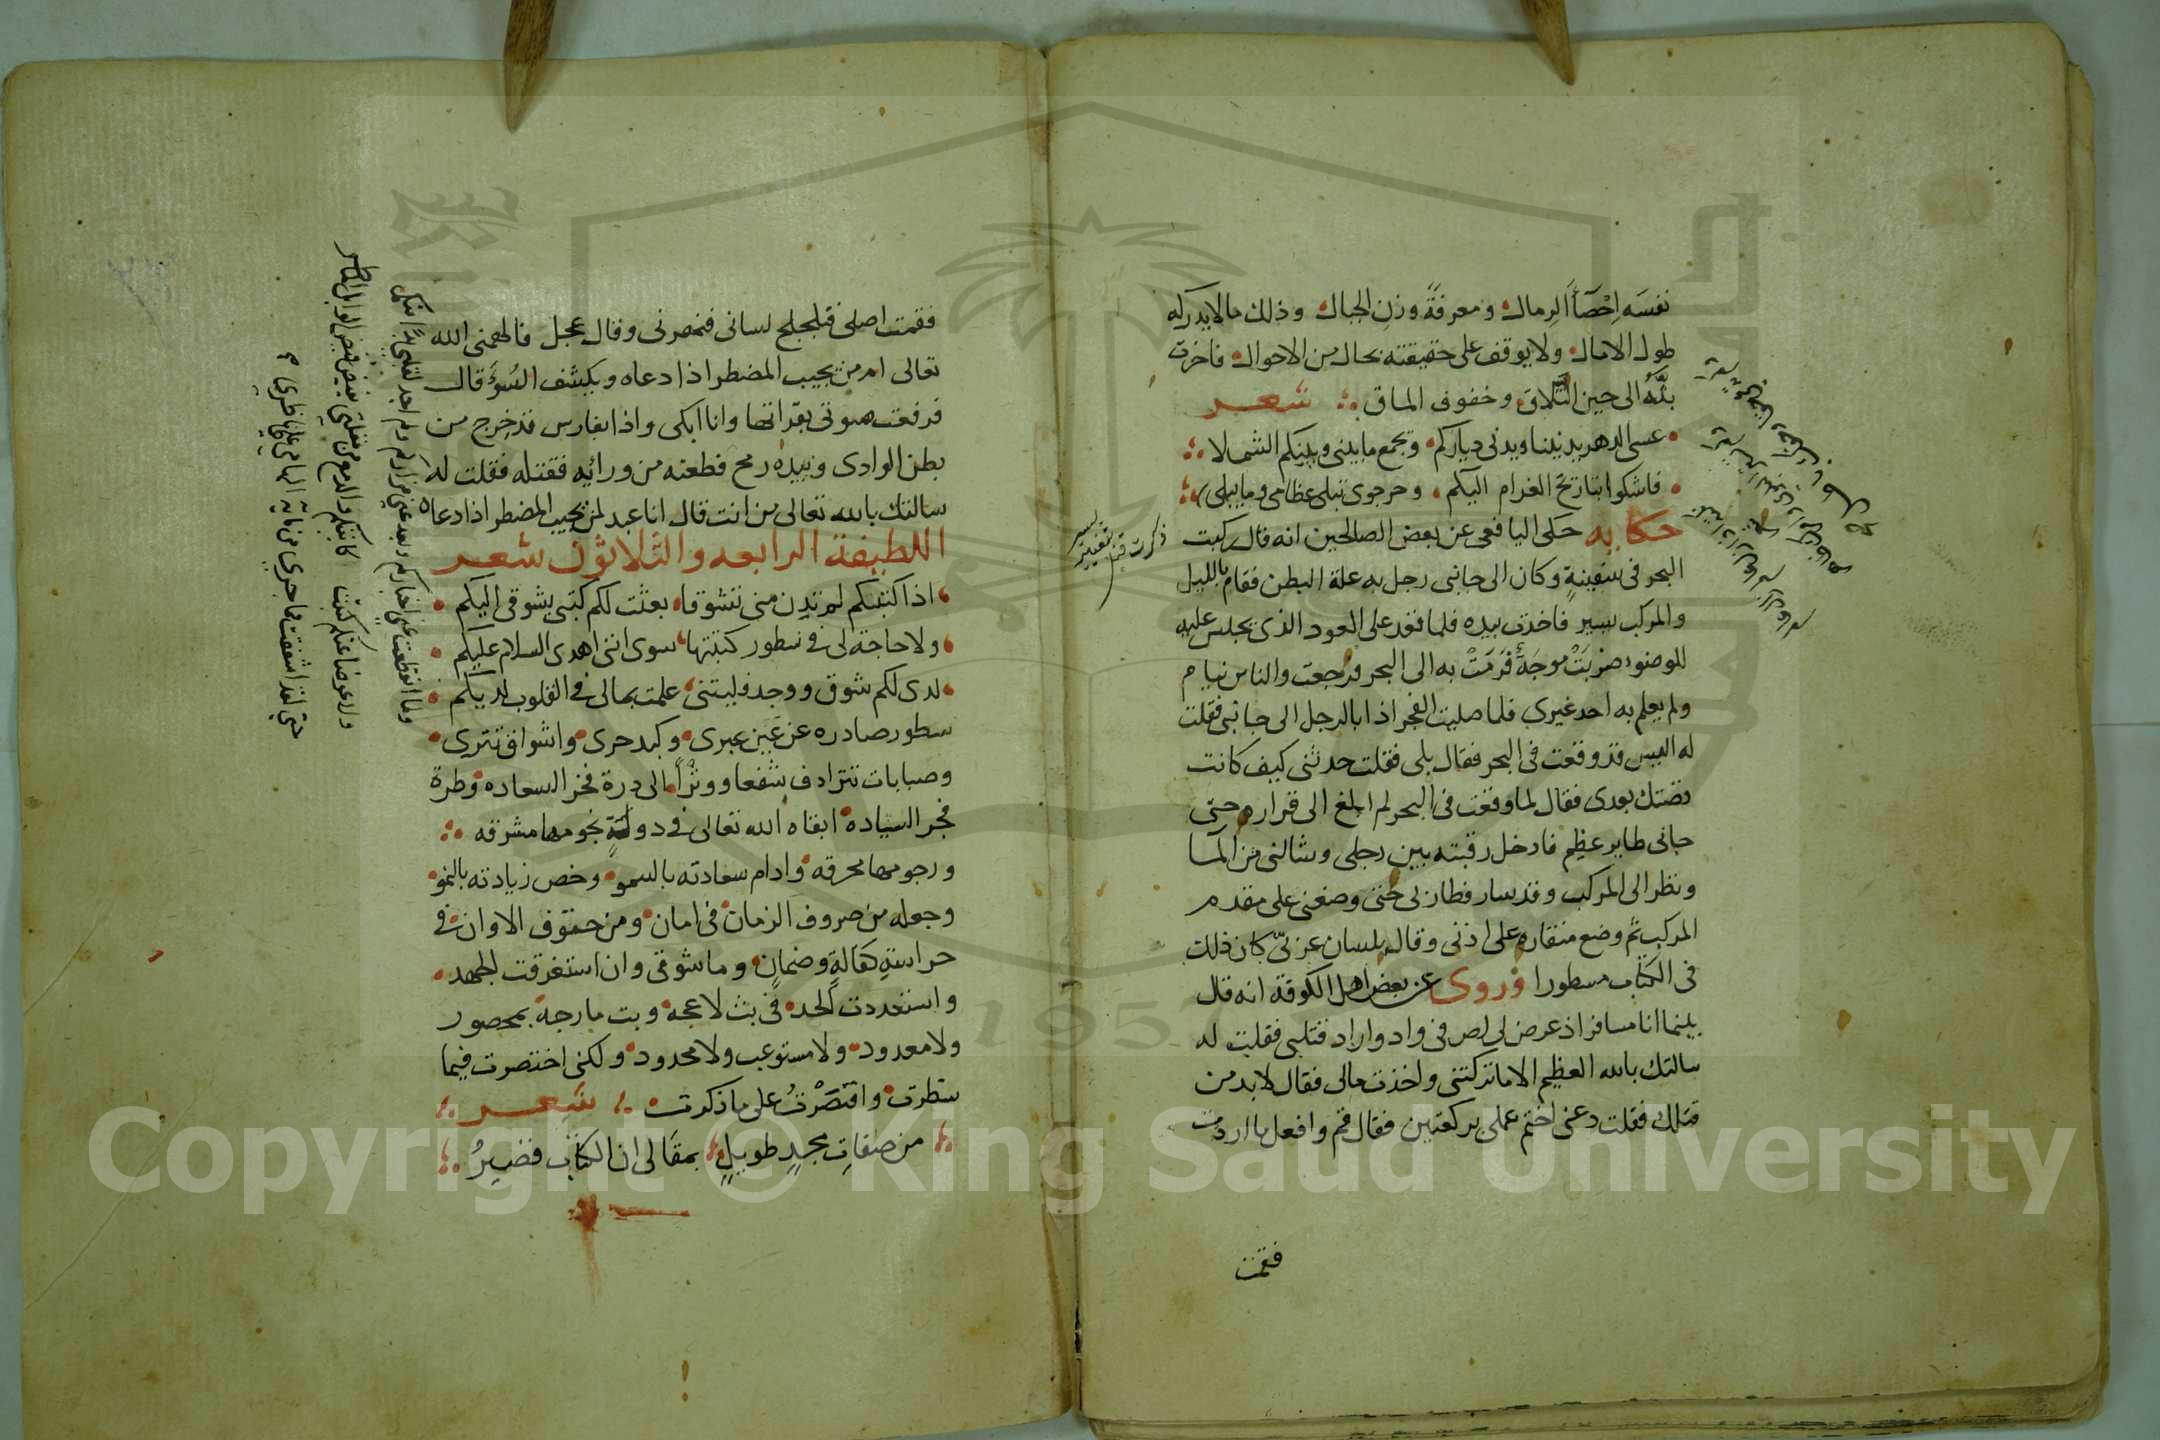 نفسَه اِحْصَآءَ الرمال ومعرفةً وزن الجبال وذلك ما لا يدركه
طول الامال ولا يوقف على حقيقته بحال من الاحوال فاخرت
بثَّه الى حين التلاق وخفوف الماق شعر
عسى الدهر يدنينا ويدنى دياركم وتجمع ما بينى وبينكم الشملا
فاشكوا تباريح الغرام اليكم وحر جوى تبلى عظامى وما يبلى
حكايه حكى اليافعى عن بعض الصالحين انه قال ركبت
البحر فى سفينةٍ وكان الى جانبى رجل به علة البطن فقام بالليل
والمركب يسير فاخذت بيده فلما قعد على العود الذى يجلس عليه
للوضوء ضربَتْ موجَةٌ فَرَمَتْ به الى البحر فرجعت والناس نيام
ولم يعلم به احد غيري فلما صليت الفجر اذا بالرجل الى جانبى فقلت
له اليس قد وقعت فى البحر فقال بلى فقلت حدثنى كيف كانت
قصتك بعدى فقال لما وقعت فى البحر لم ابلغ الى قراره حتى
جانى طاير عظيم فادخل رقبته بين رجلى وشالنى من المآ
ونظر الى المركب وقد سار فطار بى حتى وضعنى على مقدم
المركب ثم وضع منقاره على اذنى وقال بلسان عربىّ كان ذلك
فى الكتاب مسطورا وروى عن بعض اهل الكوفة انه قال
بينما انا مسافر اذ عرض لى لص فى واد واراد قتلى فقلت له
سالتك بالله العظيم الا ما تركتنى واخذت مالى فقال لا بد من
قتلك فقلت دعنى اختم عملى بركعتين فقال قم وافعل ما اردت
فقمت
فقمت اصلى فتلجلج لسانى فنهرنى وقال عجل فالهمنى الله
تعالى امن يجيب المضطر اذا دعاه ويكشف السُوءَ قال
فرفعت صوتى بقراتها وانا ابكى واذا بفارس قد خرج من
بطن الوادى وبيده رمح فطعنه من ورائه فقتله فقلت له
سالتك بالله تعالى من انت قال انا عبد لمن يجيب المضطر اذا دعاه
اللطيفة الرابعه والثلاثون شعر
اذا كتبكم لم تدن منى تشوقا بعثت لكم كتبى بشوقى اليكم
ولا حاجة لى فى سطور كتبتها سوى اننى اهدى السلام عليكم
لدى لكم شوق ووجد فليتنى علمت بمالى فى القلوب لديكم
سطور صادره عن عَين عبرى وكبد حرى واشواق تترى
وصبابات تترادف شفعا ووترًا الى درة فخر السعاده وطرة
فجر السياده ابقاه الله تعالى فى دولةٍ نجومها مشرقه
ورجومها محرقه وادام سعادته بالسمو وخص زيادته بالنمو
وجعله من صروف الزمان فى امان ومن حتوف الاوان فى
حراسةِ كفالةٍ وضمانٍ وما شوقى وان استغرقت الجهد
واستعددت للحد فى بث لاعجه وبت مارجه بمحصور
ولا معدود ولا مستوعب ولا محدود ولكنى اختصرت فيما
سطرت واقتصَرْتُ على ما ذكرت شعر
من صفاتِ مجدٍ طويلٍ بمقالى ان الكتاب قصيرُ